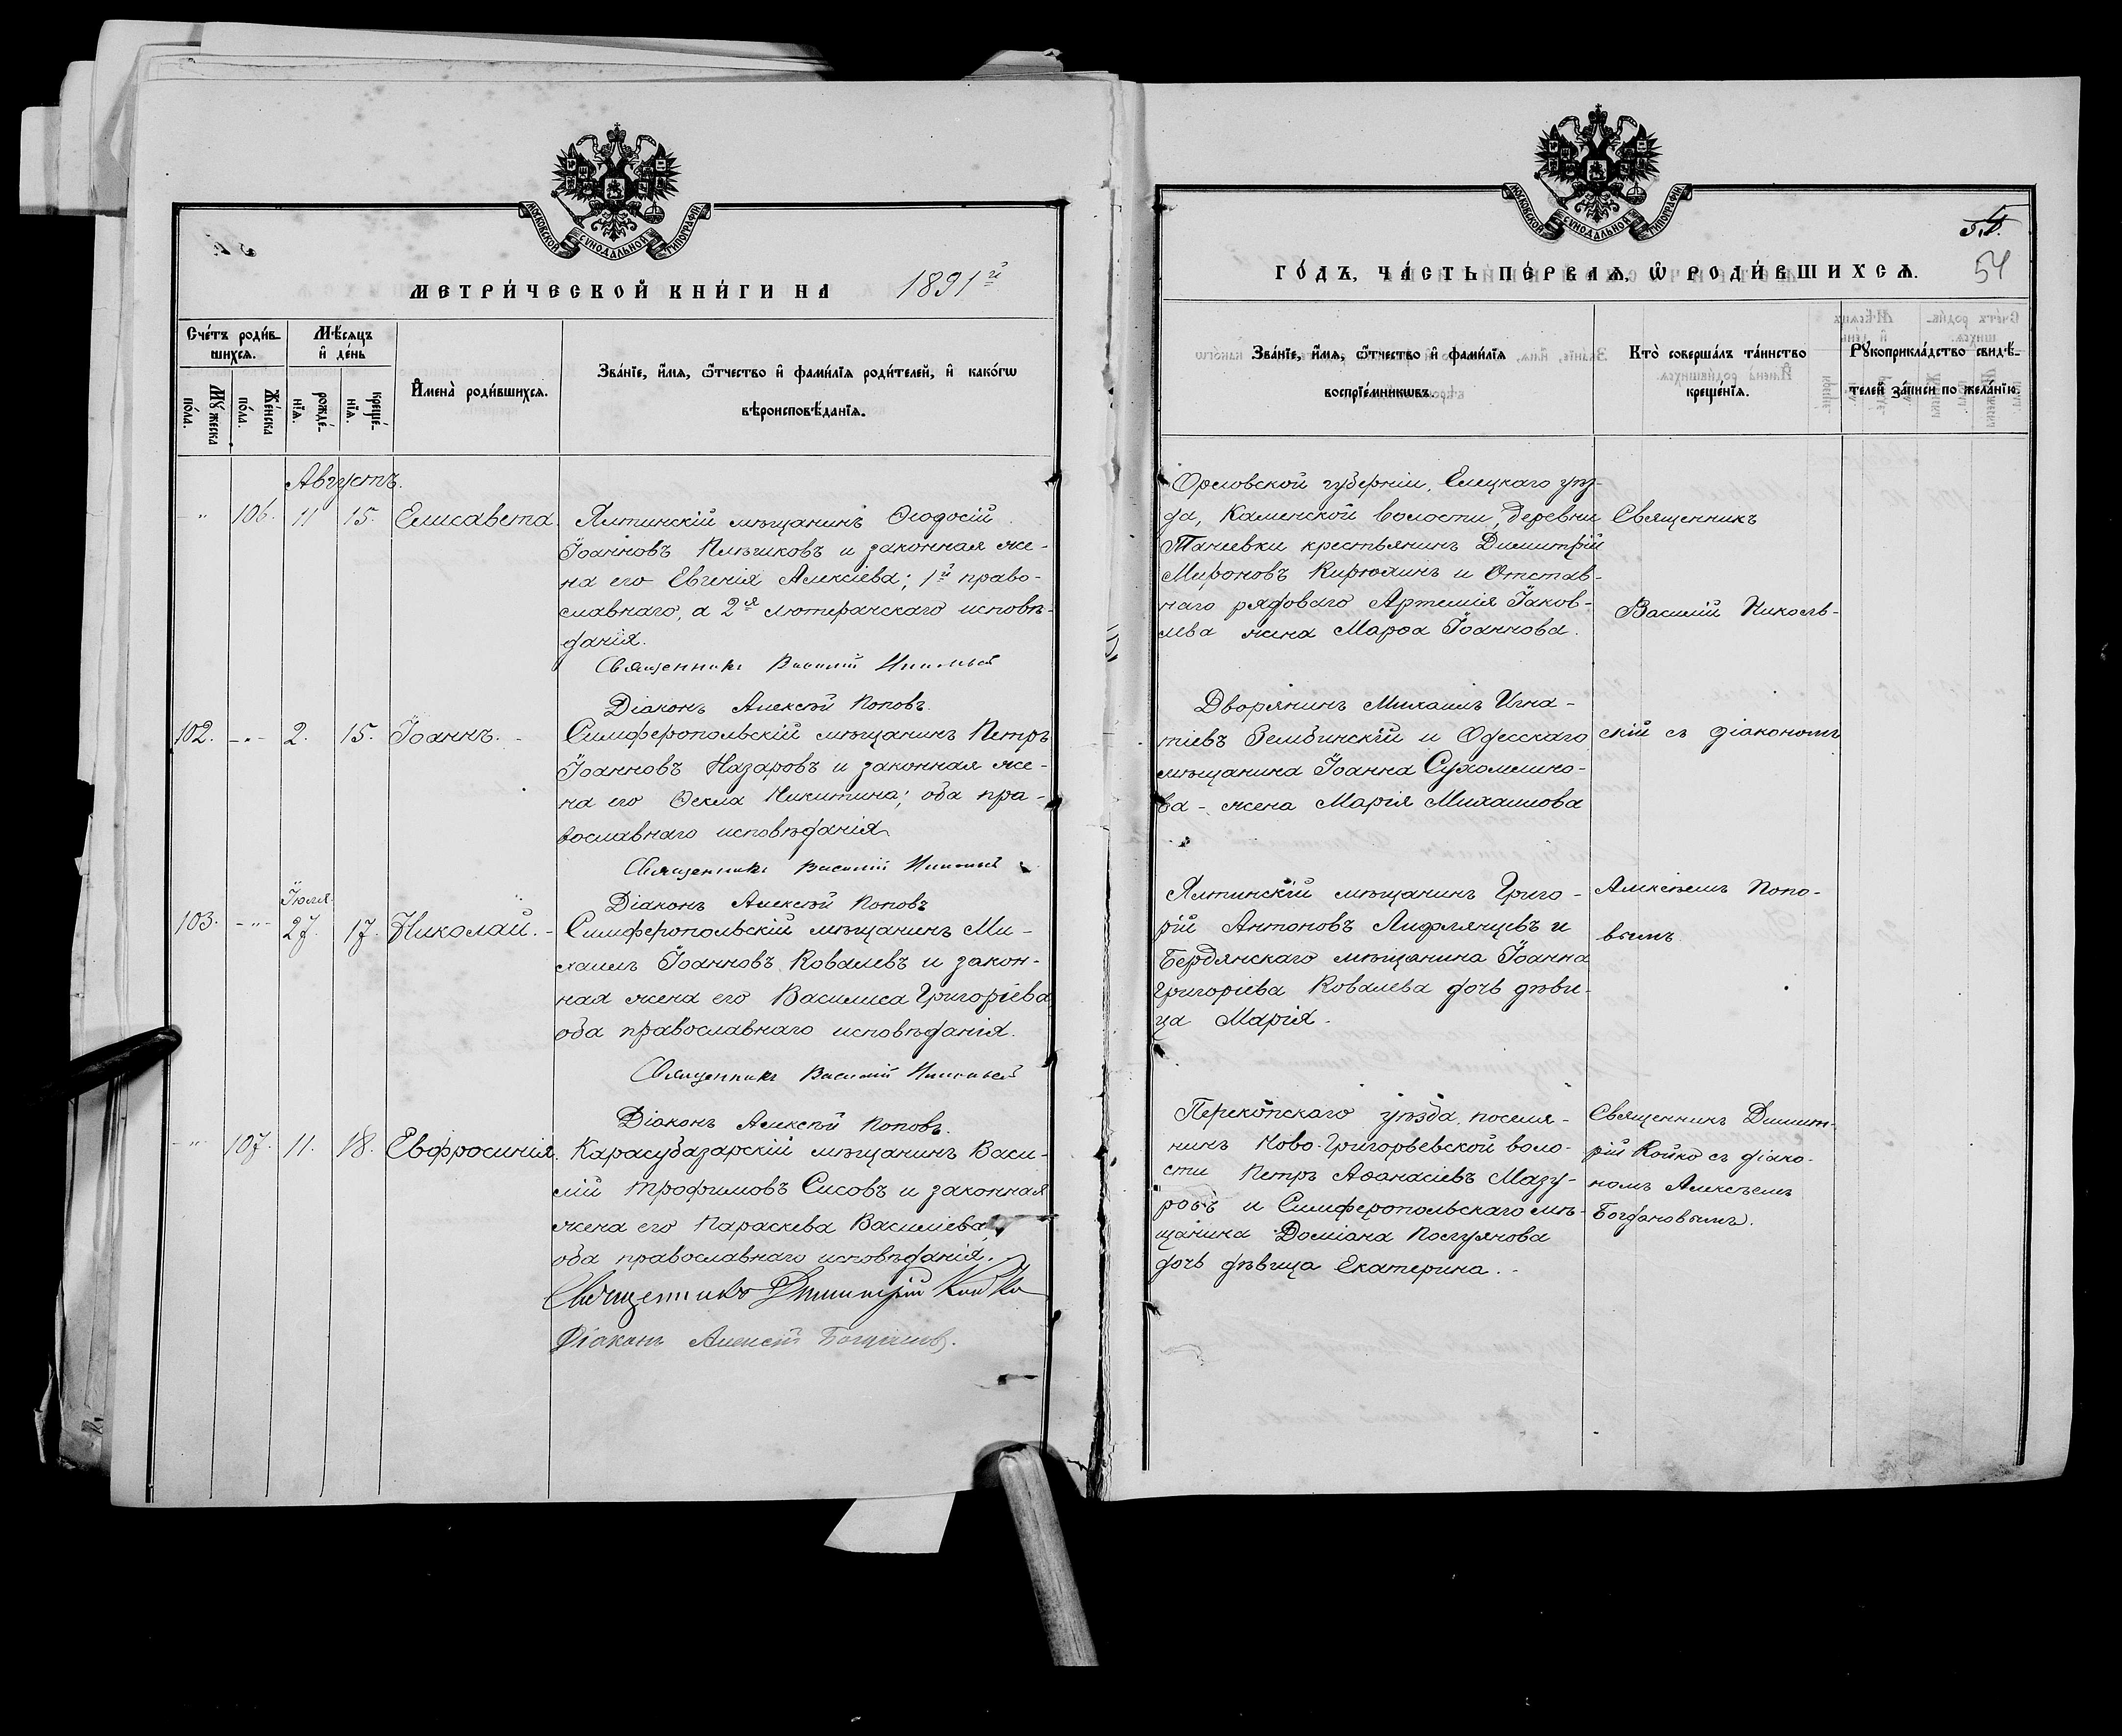 МОСКОВСКОЙ СУНОДАЛЬНОЙ ТИПОГРАФІИ
МЕТРИ́ЧЕСКОЙ КНИ́ГИ НА 1891й
Сче́тъ роди́в-
шихся.
Мѣ́сяцъ
и҆ де́нь
Мꙋ́жеска
по́ла.
Же́нска
по́ла.
рожде́-
нїя.
креще́-
нїя.
И҆мена̀ роди́вшихся.
Зва́нїе, и҆́мя, ѻ҆́тчество и҆ фами́лїя роди́телей, и҆ како́гѡ
вѣроисповѣ́данїя.
Августъ.
" 106. 11 15. Елисавета.
Ялтинскій мѣщанинъ Ѳеодосій
Іоанновъ Плѣшковъ и законная же-
на его Евгенія Алексіева; 1й право-
славнаго, а 2я лютеранскаго исповѣ-
данія.
Священникъ Василій Никольскій
Діаконъ Алексѣй Поповъ.
102. - " - 2. 15. Іоаннъ. -
Симферопольскій мѣщанинъ Петръ
Іоанновъ Назаровъ и законная же-
на его Ѳекла Никитина; оба пра-
вославнаго исповѣданія
Священникъ Василій Никольскій
Діаконъ Алексѣй Поповъ
Іюля.
103. - " - 27. 17. Николай. -
Симферопольскій мѣщанинъ Ми-
хаилъ Іоанновъ Ковалевъ и закон-
ная жена его Василиса Григоріева
оба православнаго исповѣданія.
Священникъ Василій Никольскій
Діаконъ Алексѣй Поповъ.
- " 107. 11. 18. Евфросинія.
Карасубазарскій мѣщанинъ Васи-
лій Трофимовъ Сисовъ и законная
жена его Параскева Василіева,
оба православнаго исповѣданія.
Священникъ Димитрій Койко
Діаконъ Алексѣй Богдановъ.
МОСКОВСКОЙ СУНОДАЛЬНОЙ ТИПОГРАФІИ
54
ГО́ДЪ, ЧА́СТЬ ПЕ́РВАЯ, Ѡ҆ РОДИ́ВШИХСЯ.
Зва́нїе, и҆́мя, ѻ҆́тчество и҆ фами́лїя
воспрїе́мникѡвъ.
Кто̀ соверша́лъ та́инство
креще́нїя.
Рꙋкоприкла́дство свидѣ́-
телей за́писи по жела́нїю.
Орловской губерніи, Елецкаго уѣз-
да, Каменской волости, деревни
Танеевки крестьянинъ Димитрій
Мироновъ Кирюхинъ и Отстав-
наго рядоваго Артемія Іаков-
лева жена Марѳа Іоаннова.
Священникъ
Василій Николь-
Дворянинъ Михаилъ Игна-
тіевъ Зембинскій и Одесскаго
мѣщанина Іоанна Сухомлино-
ва - жена Марія Михаилова
скій съ діакономъ
Ялтинскій мѣщанинъ Григо-
рій Антоновъ Лифлянцевъ и
Бердянскаго мѣщанина Іоанна
Григоріева Ковалева дочь дѣви-
ца Марія.
Алексѣемъ Попо-
вымъ.
Перекопскаго уѣзда, поселя-
нинъ Ново-Григорьевской воло-
сти Петръ Аѳанасіевъ Мазу-
ровъ и Симферопольскаго мѣ-
щанина Доміана
дочь дѣвица Екатерина. -
Священникъ Димит-
рій Койко съ діако-
номъ Алексѣемъ
Богдановымъ.